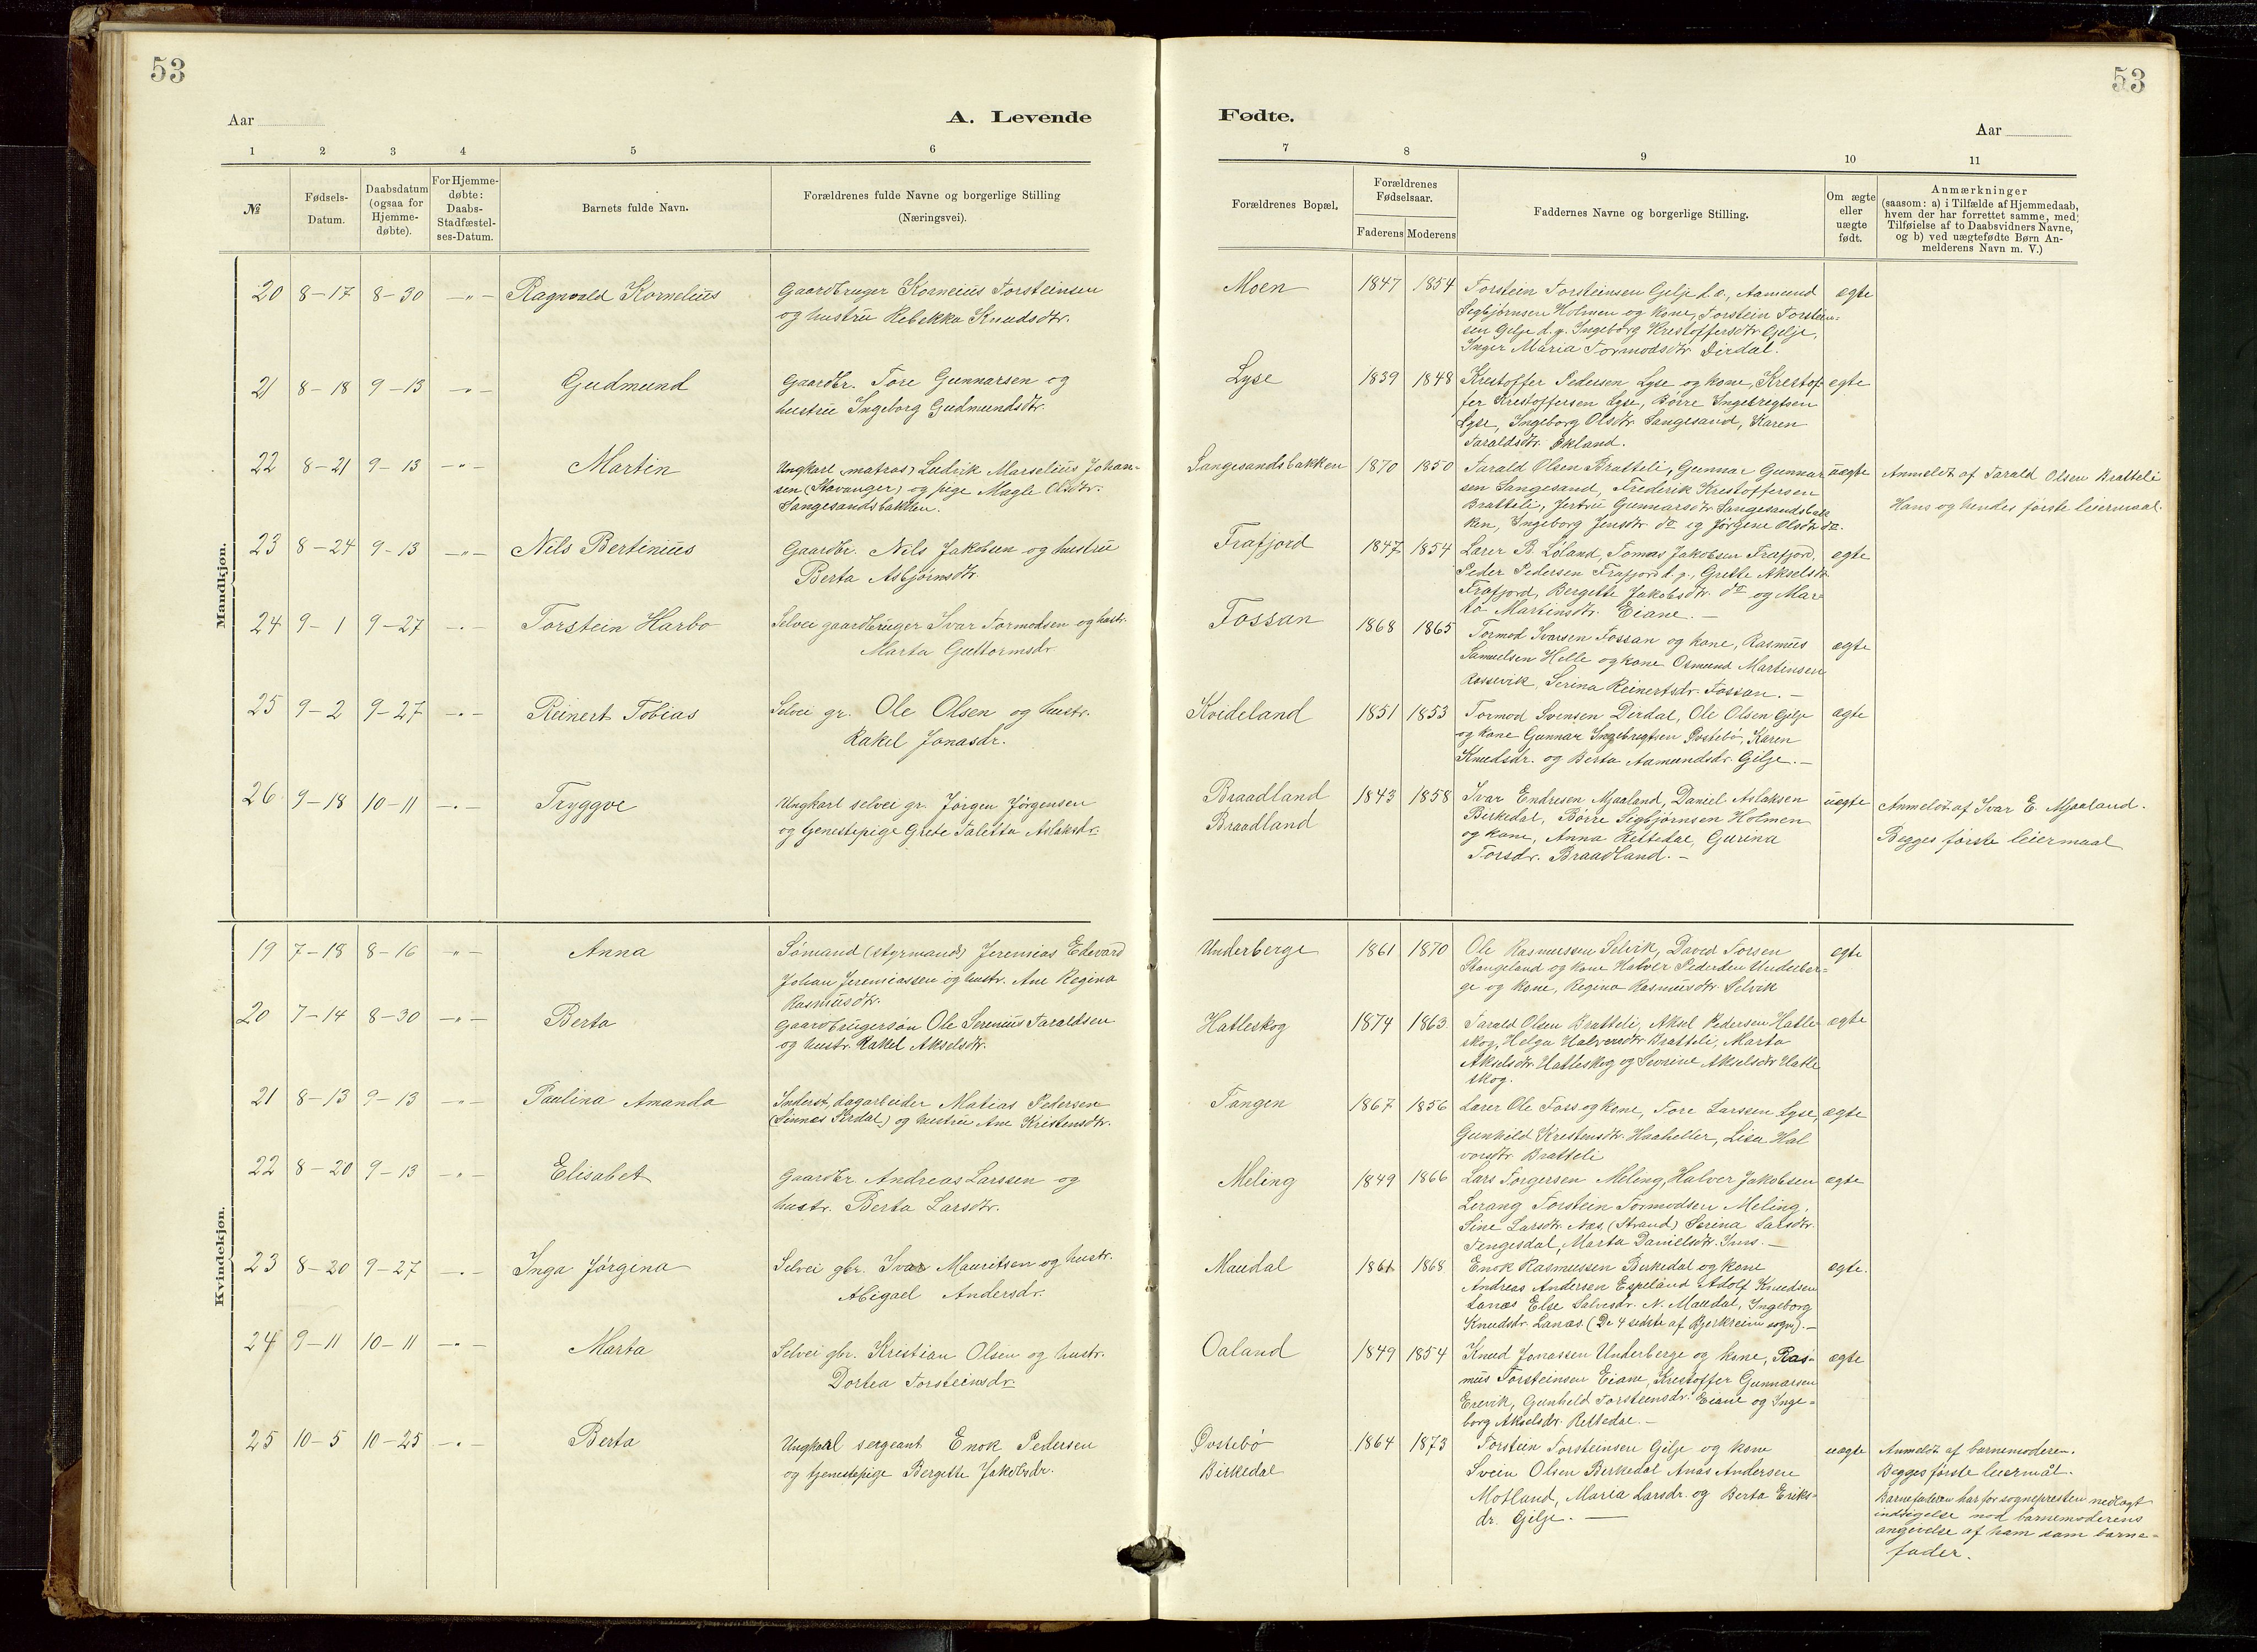 53
Aar
A. Levende
1 2 3 4 5 6
№
Fødsels-
Datum.
Daabsdatum
(ogsaa for
Hjemme-
døbte).
For Hjemme-
døbte:
Daabs-
Stadfæstel-
ses-Datum.
Barnets fulde Navn.
Forældrenes fulde Navne og borgerlige Stilling
(Næringsvei).
Mandkjøn.
20 8-17 8-30 —"— Ragnvald Kornelius
Gaardbruger Kornelius Torsteinsen
og hustru Rebekka Knudsdtr.
21 8-18 9-13 —"— Gudmund
Gaardbr. Tore Gunnarsen og
hustru Ingeborg Gudmundsdtr.
22 8-21 9-13 —"— Martin
Ungkarl (matros) Ludvik Marselius Johan-
sen (Stavanger) og pige Magle Olsdtr.
Sangesandsbakken.
23 8-24 9-13 —"— Nils Bertinius
Gaardbr. Nils Jakobsen og hustru
Berta Asbjørnsdtr.
24 9-1 9-27 —"— Torstein Harbo
Selvei gaardbruger Ivar Tormodsen og hustr.
Marta Guttormsdr.
25 9-2 9-27 —"— Reinert Tobias
Selvei gr. Ole Olsen og hustr.
Rakel Jonasdr.
26 9-18 10-11 —"— Tryggve
Ungkarl selvei gr. Jörgen Jörgensen
og tjenestepige Grete Taletta Aslaksdr.
Kvindekjøn.
19 7-18 8-16 —"— Anna
Sömand (styrmand) Jeremias Edevard
Johan Jeremiassen og hustr. Ane Regina
Rasmusdtr.
20 7-14 8-30 —"— Berta
Gaardbrugersön Ole Serenius Taraldsen
og hustr. Rakel Akselsdtr.
21 8-13 9-13 —"— Paulina Amanda
Inderst, dagarbeider Matias Pedersen
(Sinnes Sirdal) og hustru Ane Kristensdtr.
22 8-20 9-13 —"— Elisabet
Gaardbr. Andreas Larssen og
hustr. Berta Larsdtr.
23 8-20 9-27 —"— Inga Jørgina
Selvei gbr. Ivar Mauritsen og hustr.
Abigael Andersdr.
24 9-11 10-11 —"— Marta
Selvei gbr. Krestian Olsen og hustr.
Dortea Torsteinsdr.
25 10-5 10-25 —"— Berta
Ungkarl sergeant Enok Pedersen
og tjenestepige Bergitte Jakobsdr.
53
Fødte.
Aar
7 8 9 10 11
Forældrenes Bopæl.
Forældrenes
Fødselsaar.
Faderens Moderens
Faddernes Navne og borgerlige Stilling.
Om ægte
eller
uægte
født.
Anmærkninger
(saasom: a) i Tilfælde af Hjemmedaab,
hvem der har forrettet samme, med
Tilføielse af to Daabsvidners Navne,
og b) ved uægtefødte Børn An-
melderens Navn m. V.)
Moen 1847 1854 Torstein Torsteinsen Gilje d. æ., Aamund ægte
Sigbjørnsen Holmen og kone, Torstein Torstein-
sen Gilje d. y. Ingeborg Krestoffersdtr. Gilje,
Inger Maria Tormodsdtr. Dirdal.
Lyse 1839 1848 Krestoffer Pedersen Lyse og kone, Krestof- ægte
fer Krestoffersen Lyse, Börre Ingebregtsen
Lyse, Ingeborg Olsdtr. Sangesand, Karen
Taraldsdtr. Økland.
Sangesandsbakken 1870 1850 Tarald Olsen Bratteli, Gunnar Gunnar- uægte Anmeldt af Tarald Olsen Bratteli
sen Sangesand, Frederik Krestoffersen Hans og hendes første leiermaal.
Bratteli, Jertru Gunnarsdtr. Sangesandsbak-
ken, Ingeborg Jensdtr. do og Jörgine Olsdtr. do.
Frafjord 1847 1854 Lærer B. Löland, Tomas Jakobsen Frafjord, ægte
Peder Pedersen Frafjord d. y., Grette Akselsdtr.
Frafjord, Bergette Jakobsdtr. do og Mar-
ta Martinsdtr. Eiane.—
Fossan 1868 1865 Tormod Ivarsen Fossan og kone, Rasmus ægte
Samuelsen Helle og kone Osmund Martinsen
Rossevik, Serina Reinertsdr. Fossan.—
Kvideland 1851 1853 Tormod Svensen Dirdal, Ole Olsen Gilje ægte
og kone Gunnar Ingebregtsen Østebö, Karen
Knudsdr. og Berta Aamundsdr. Gilje.—
Braadland 1843 1858 Ivar Endresen Mjaaland, Daniel Aslaksen uægte Anmeldt af Ivar E. Mjaaland.
Braadland Birkedal, Börre Sigbjörnsen Holmen Begges første leiermaal
og kone, Anna Rettedal, Gurina
Torsdr. Braadland.—
Underberge 1861 1870 Ole Rasmussen Selvik, David Tossen ægte
Stangeland og kone Halver Pedersen Underber-
ge og kone, Regina Rasmusdtr. Selvik
Hatleskog 1874 1863 Tarald Olsen Bratteli, Aksel Pedersen Hatle- ægte
skog, Helga Halversdtr. Bratteli, Marta
Akselsdtr. Hatleskog og Severine Akselsdtr. Hatle
skog.
Tangen 1867 1856 Lærer Ole Foss og kone, Tore Larssen Lyse, ægte
Gunhild Krestensdtr. Haaheller, Lisa Hal
vorsdtr. Bratteli
Meling 1849 1866 Lars Torgersen Meling, Halver Jakobsen ægte
Lerang Torstein Tormodsen Meling,
Sine Larsdtr. Næs (Strand) Serina Larsdtr.
Tengesdal, Marta Danielsdtr. Ims.—
Maudal 1861 1868 Enok Rasmussen Birkedal og kone ægte.
Andreas Andersen Espeland Adolf Knudsen
Lanes Else Salvesdr. N. Maudal, Ingeborg
Knudsdr. Lanæs. (De 4 sidste af Bjerkreim sogn).—
Oaland 1849 1854 Knud Jonassen Underberge og kone, Ras- ægte
mus Torsteinsen Eiane, Krestoffer Gunnarsen
Erevik, Gunheld Torsteinsdr. Eiane og Inge-
borg Akselsdr. Rettedal.—
Østebö 1864 1873 Torstein Torsteinsen Gilje og kone uægte Anmeldt af barnemoderen.
Birkedal Svein Olsen Birkedal Anas Andersen Begges første leiermål.
Motland, Maria Larsdr. og Berta Eriks- Barnefaderen har for sognepresten nedlagt
dr. Gilje.— indsigelse mod barnemoderens
angivelse af ham som barne-
fader.